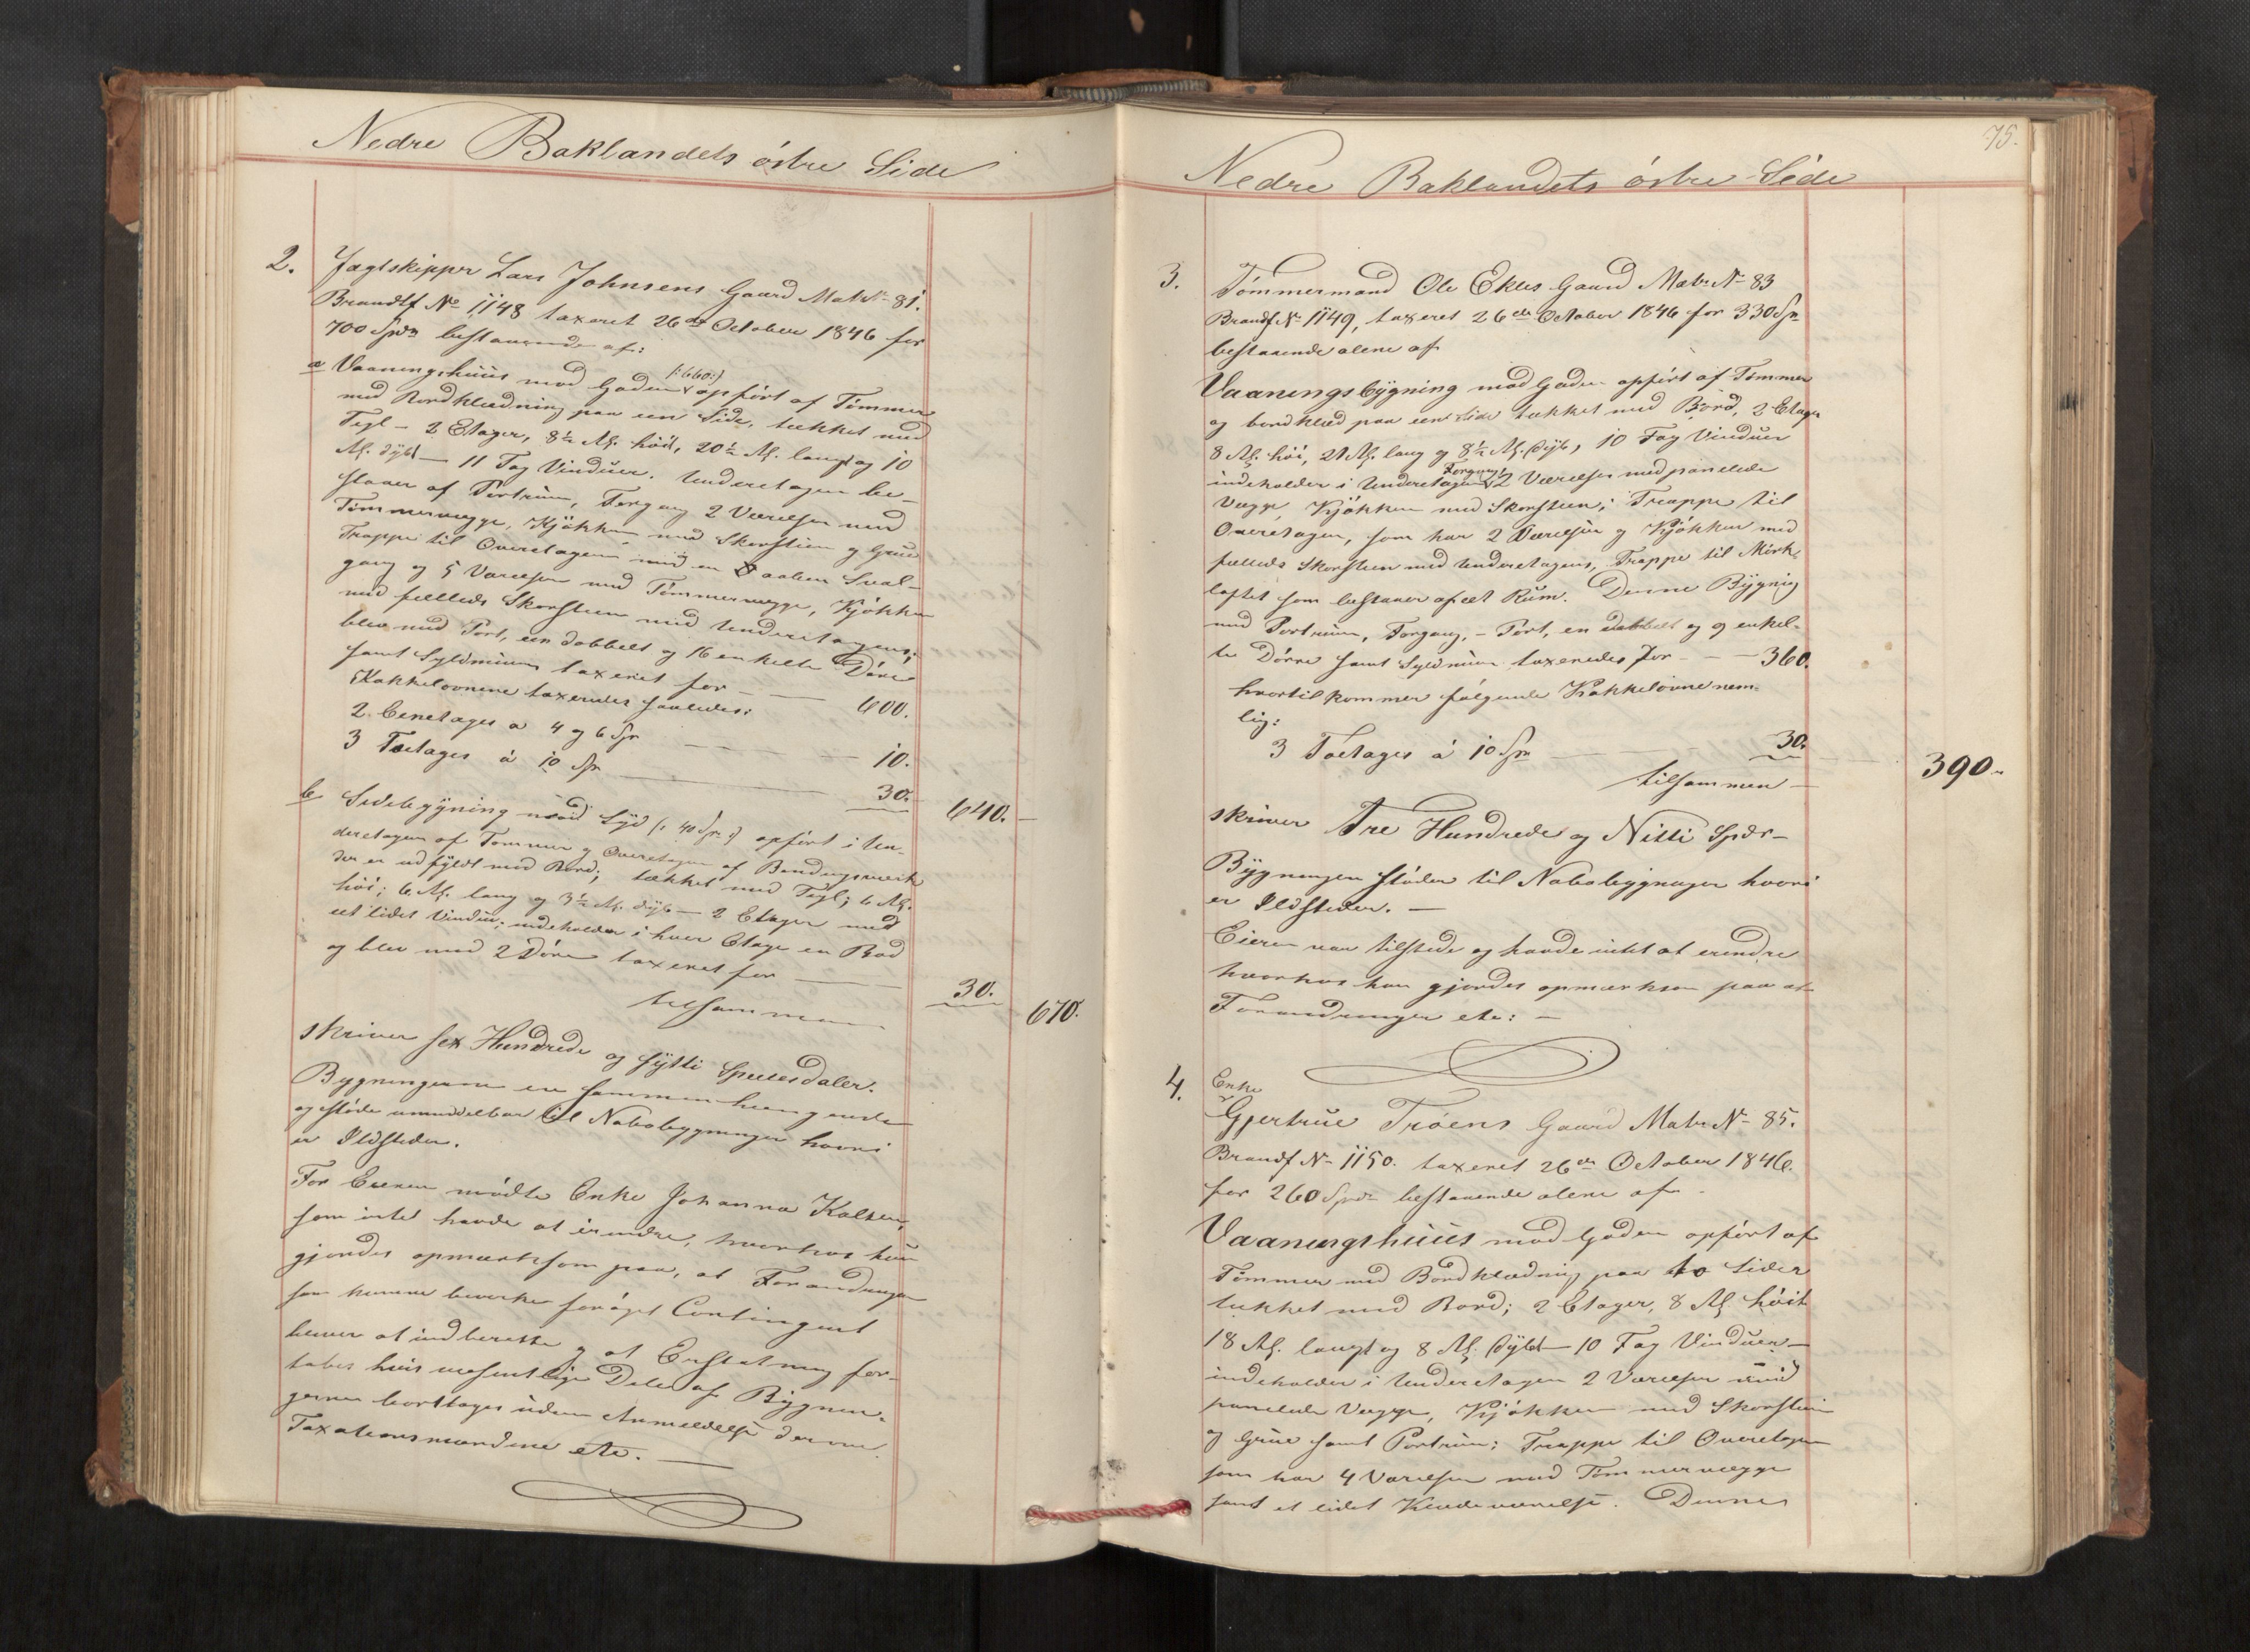 Nedre Baklandets östre Side
2. Jægtskipper Lars Johnsens Gaard Matr N 81.
Brandtf No 1148 taxeret 26de October 1846 for
700 Spdr bestaaende af:
a Vaaningshuus mod Gaden (:660:) opfört af Tömmer
med Bordklædning paa een Side, tækket med
Tegl – 2 Etager, 8½ Al. höit, 20½ Al. langt og 10
Al. dybt – 11 Fag Vinduer. Underetagen be-
staaer af Portrum, Forgang 2 Værelser med
Tömmervægge, Kjökken med Skorsteen og Grue
Trappe til Overetagen med en aaben Sval-
gang og 5 Værelser med Tömmervægge, Kjökken
med fælleds Skorsteen med Underetagens;
blev med Port, een dobbelt og 16 enkelte Döre
samt Syldmuur taxeret for — 600.
Kakkelovnene taxeredes saaledes:
2 Eenetages a 4 og 6 Spr — 10.
3 Toetages á 10 Spr — 30.
640.
b Sidebygning mod Syd (: 40 Spr :) opfört i Un-
deretagen af Tömmer og Overetagen af Bindingsværk
der er udfyldt med Bord; tækket med Tegl; 6 Al.
höi; 6 Al. lang og 3½ Al. dyb – 2 Etager med
eet lidet Vindue; indeholder i hver Etage en Bod
og blev med 2 Döre taxeret for — 30.
tilsammen 670.
skriver sex Hundrede og sytti Speciesdaler.
Bygningerne ere sammenhængende
og stöde umiddelbar til Nabobygninger hvori
er Ildsteder.
For Eieren mödte Enke Johanna
som intet havde at erindre, hvorhos hun
gjordes opmærksom paa, at Forandringer
som kunne bevirke foröget Contingent
bliver at indberette og at Erstatning for-
tabes hvis væsentlige Dele af Bygnin-
gerne borttages uden Anmeldelse derom
Taxationsmændene etc. —
75.
Nedre Baklandets östre Side
3. Tömmermand Ole Ekles Gaard Matr N 83
Brandf N 1149, taxeret 26de October 1846 for 330 Spr
bestaaende alene af
Vaaningsbygning mod Gaden opfört af Tömmer
og bordklæd paa een Side tækket med Bord, 2 Etager
8 Al. höi, 21 Al. lang og 8½ Al. dyb, 10 Fag Vinduer
indeholder i Underetagen Forgang, 2 Værelser med panelede
Vægge, Kjökken med Skorsteen; Trappe til
Overetagen, som har 2 Værelser og Kjökken med
fælleds Skorsteen med Underetagens, Trappe til Mörk-
loftet som bestaaer af et Rum. Denne Bygning
med Portrum, Forgang, – Port, en dobbelt og 9 enkel-
te Dörre samt Syldmuur taxeredes for — 360.
hvortil kommer fölgende Kakkelovne nem-
lig:
3 Toetages á 10 Spr — 30.
tilsammen — 390.
skriver Tre Hundrede og Nitti Spdr –
Bygningen stöder til Nabobygninger hvori
er Ildsteder. —
Eieren var tilstede og havde intet at erindre
hvorhos han gjordes opmærksom paa at
Forandringer etc: —
4. Enke
Gjertrue Tröens Gaard Matr N 85.
Brandf N 1150. taxeret 26de October 1846.
for 260 Spdr bestaaende alene af
Vaaningshuus mod Gaden opfört af
Tömmer med Bordklædning paa to Sider
tækket med Bord; 2 Etager, 8 Al. höit
18 Al. langt og 8 Al. dybt – 10 Fag Vinduer –
indeholder i Underetagen 2 Værelser med
panelede Vægge, Kjökken med Skorsteen
og Grue samt Portrum; Trappe til Overetagen
som har 4 Værelser med Tömmervægge
samt et lidet Klædeværelse. Denne